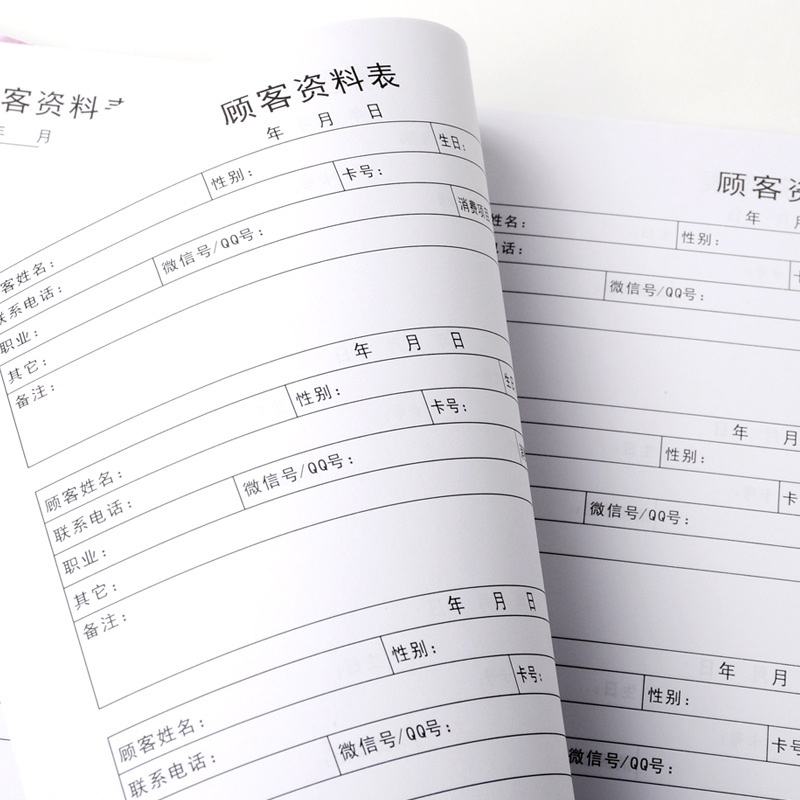 客资料
年 月
顾客资料表
年 月 日
客姓名： 性别： 生日：
联系电话： 卡号：
职业： 微信号/QQ号： 消费项目
其它：
备注：
年 月 日
顾客姓名： 性别： 生日
联系电话： 卡号：
职业： 微信号/QQ号：
其它：
备注：
年 月 日
顾客姓名： 性别：
联系电话： 卡号：
微信号/QQ号：
顾客资
年 月
姓名： 性别：
电话： 卡
微信号/QQ号：
年 月
性别：
卡
微信号/QQ号：
年 月
性别：
卡号：
微信号/QQ号：